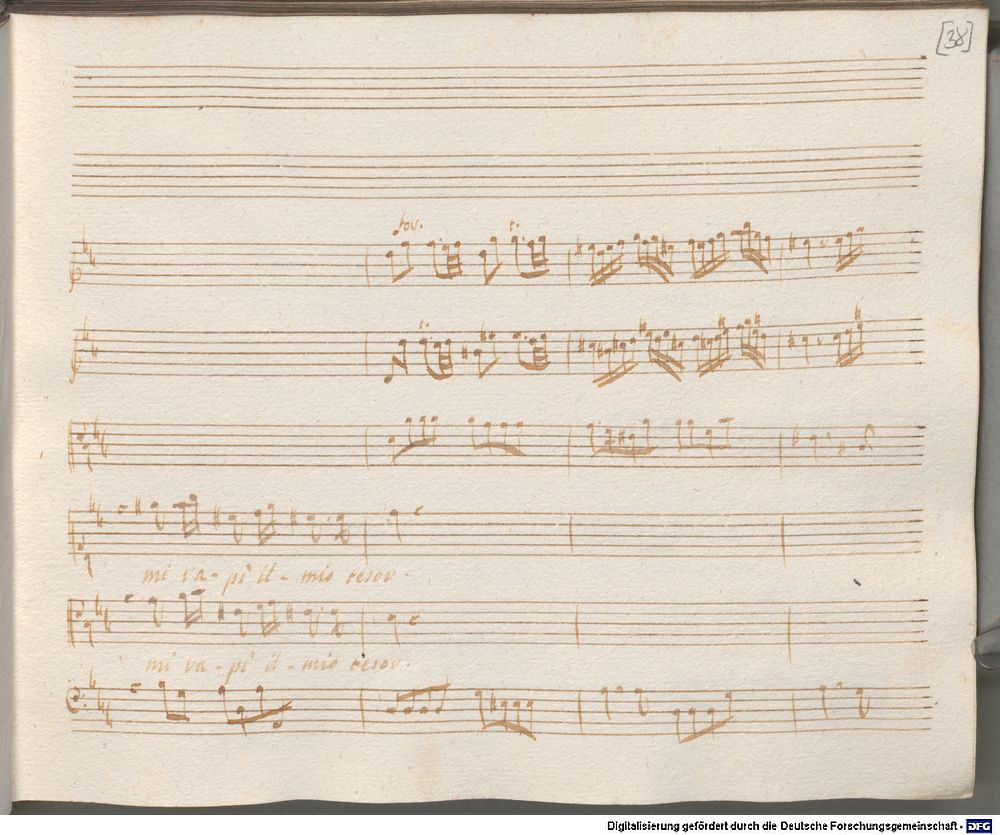 [38]
for.
t.
mi ra - pì il - mio tesor.
mi ra - pì il - mio tesor.
Digitalisierung gefördert durch die Deutsche Forschungsgemeinschaft - DFG